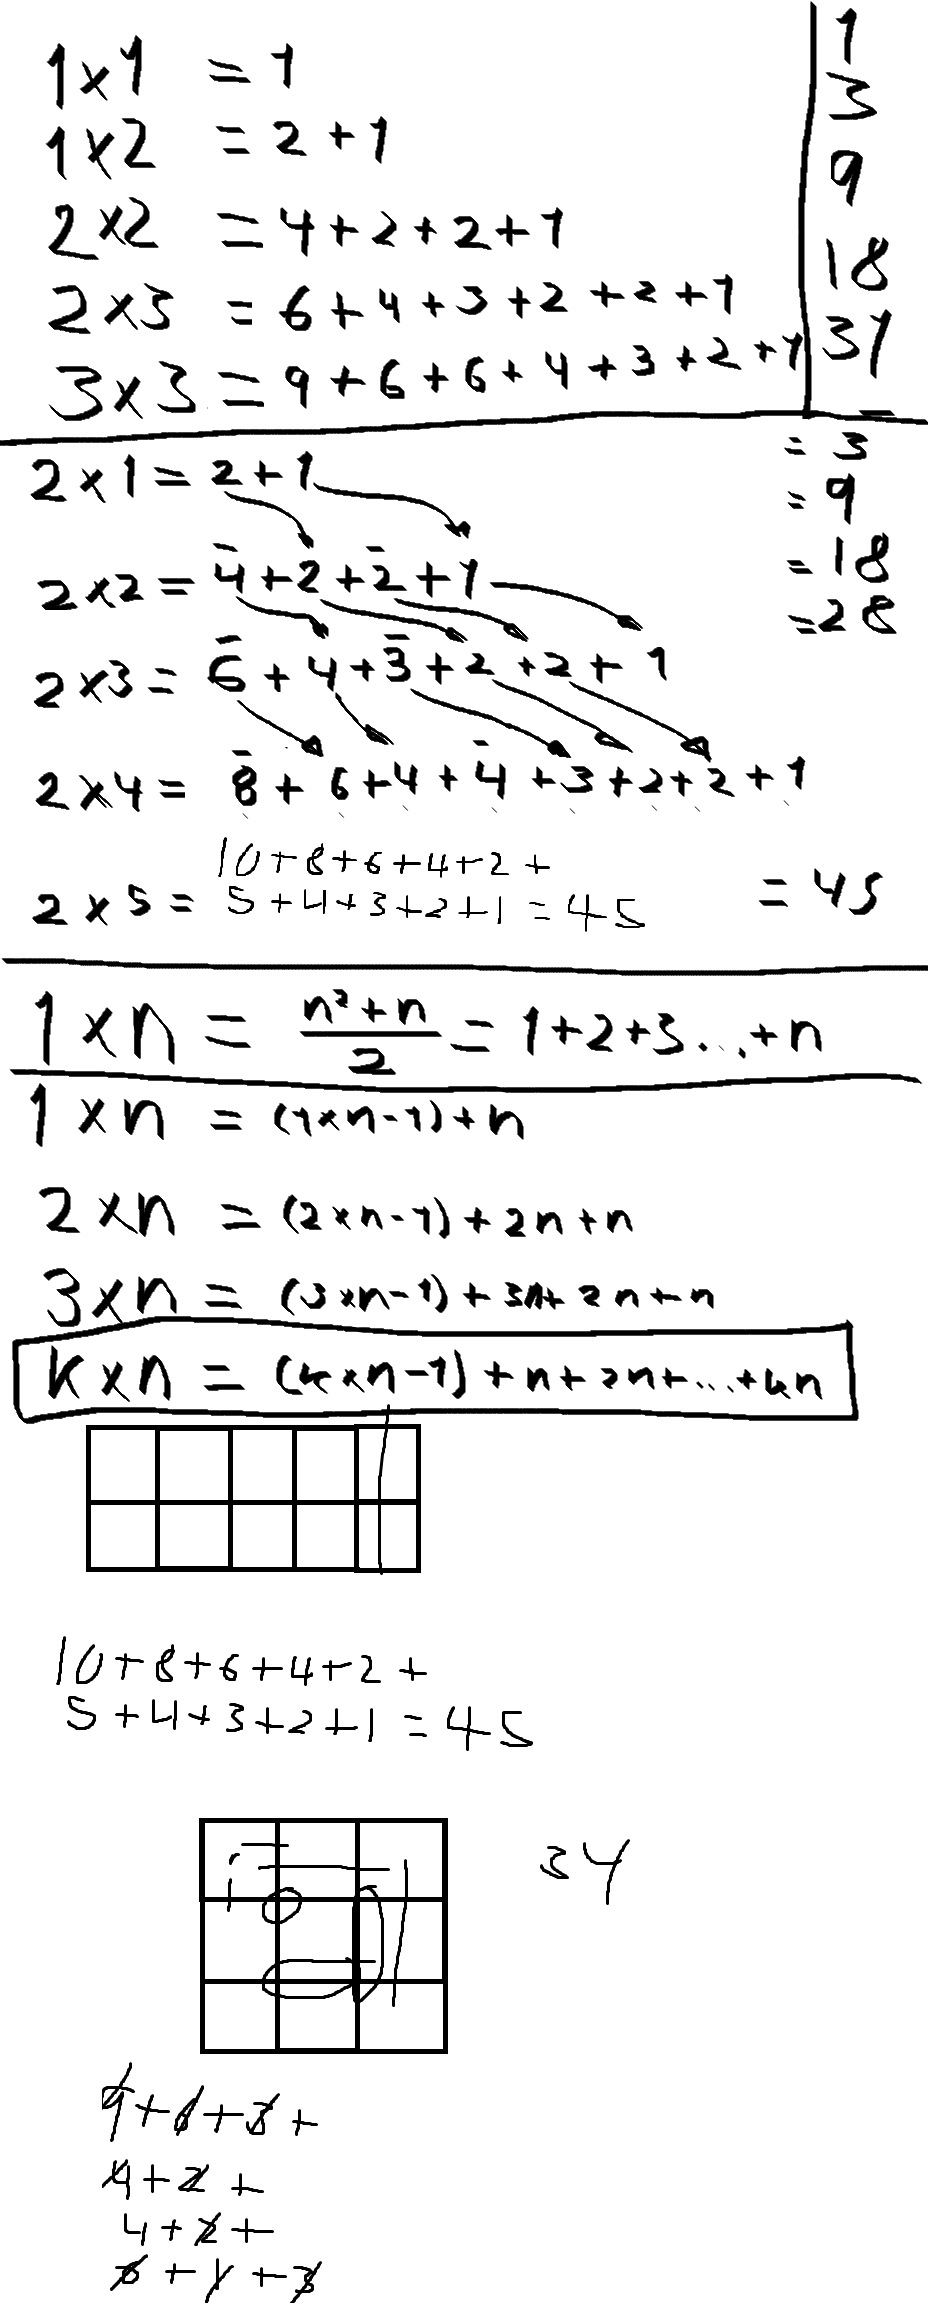 1×1 = 1 | 1
1×2 = 2+1 | 3
2×2 = 4+2+2+1 | 9
2×3 = 6+4+3+2+2+1 | 18
3×3 = 9+6+6+4+3+2+1 | 31
2×1 = 2+1 = 3
2×2 = 4+2+2+1 = 9
2×3 = 6+4+3+2+2+1 = 18
2×4 = 8+6+4+4+3+2+2+1 = 28
10+8+6+4+2+
2×5 = 5+4+3+2+1 = 45 = 45
1×n = (n²+n)/2 = 1+2+3...+n
1×n = (1×n-1)+n
2×n = (2×n-1)+2n+n
3×n = (3×n-1)+3n+2n+n
k×n = (k×n-1)+n+2n+...+kn
10+8+6+4+2+
5+4+3+2+1 = 45
34
9+6+3+
4+2+
4+2+
6+1+3